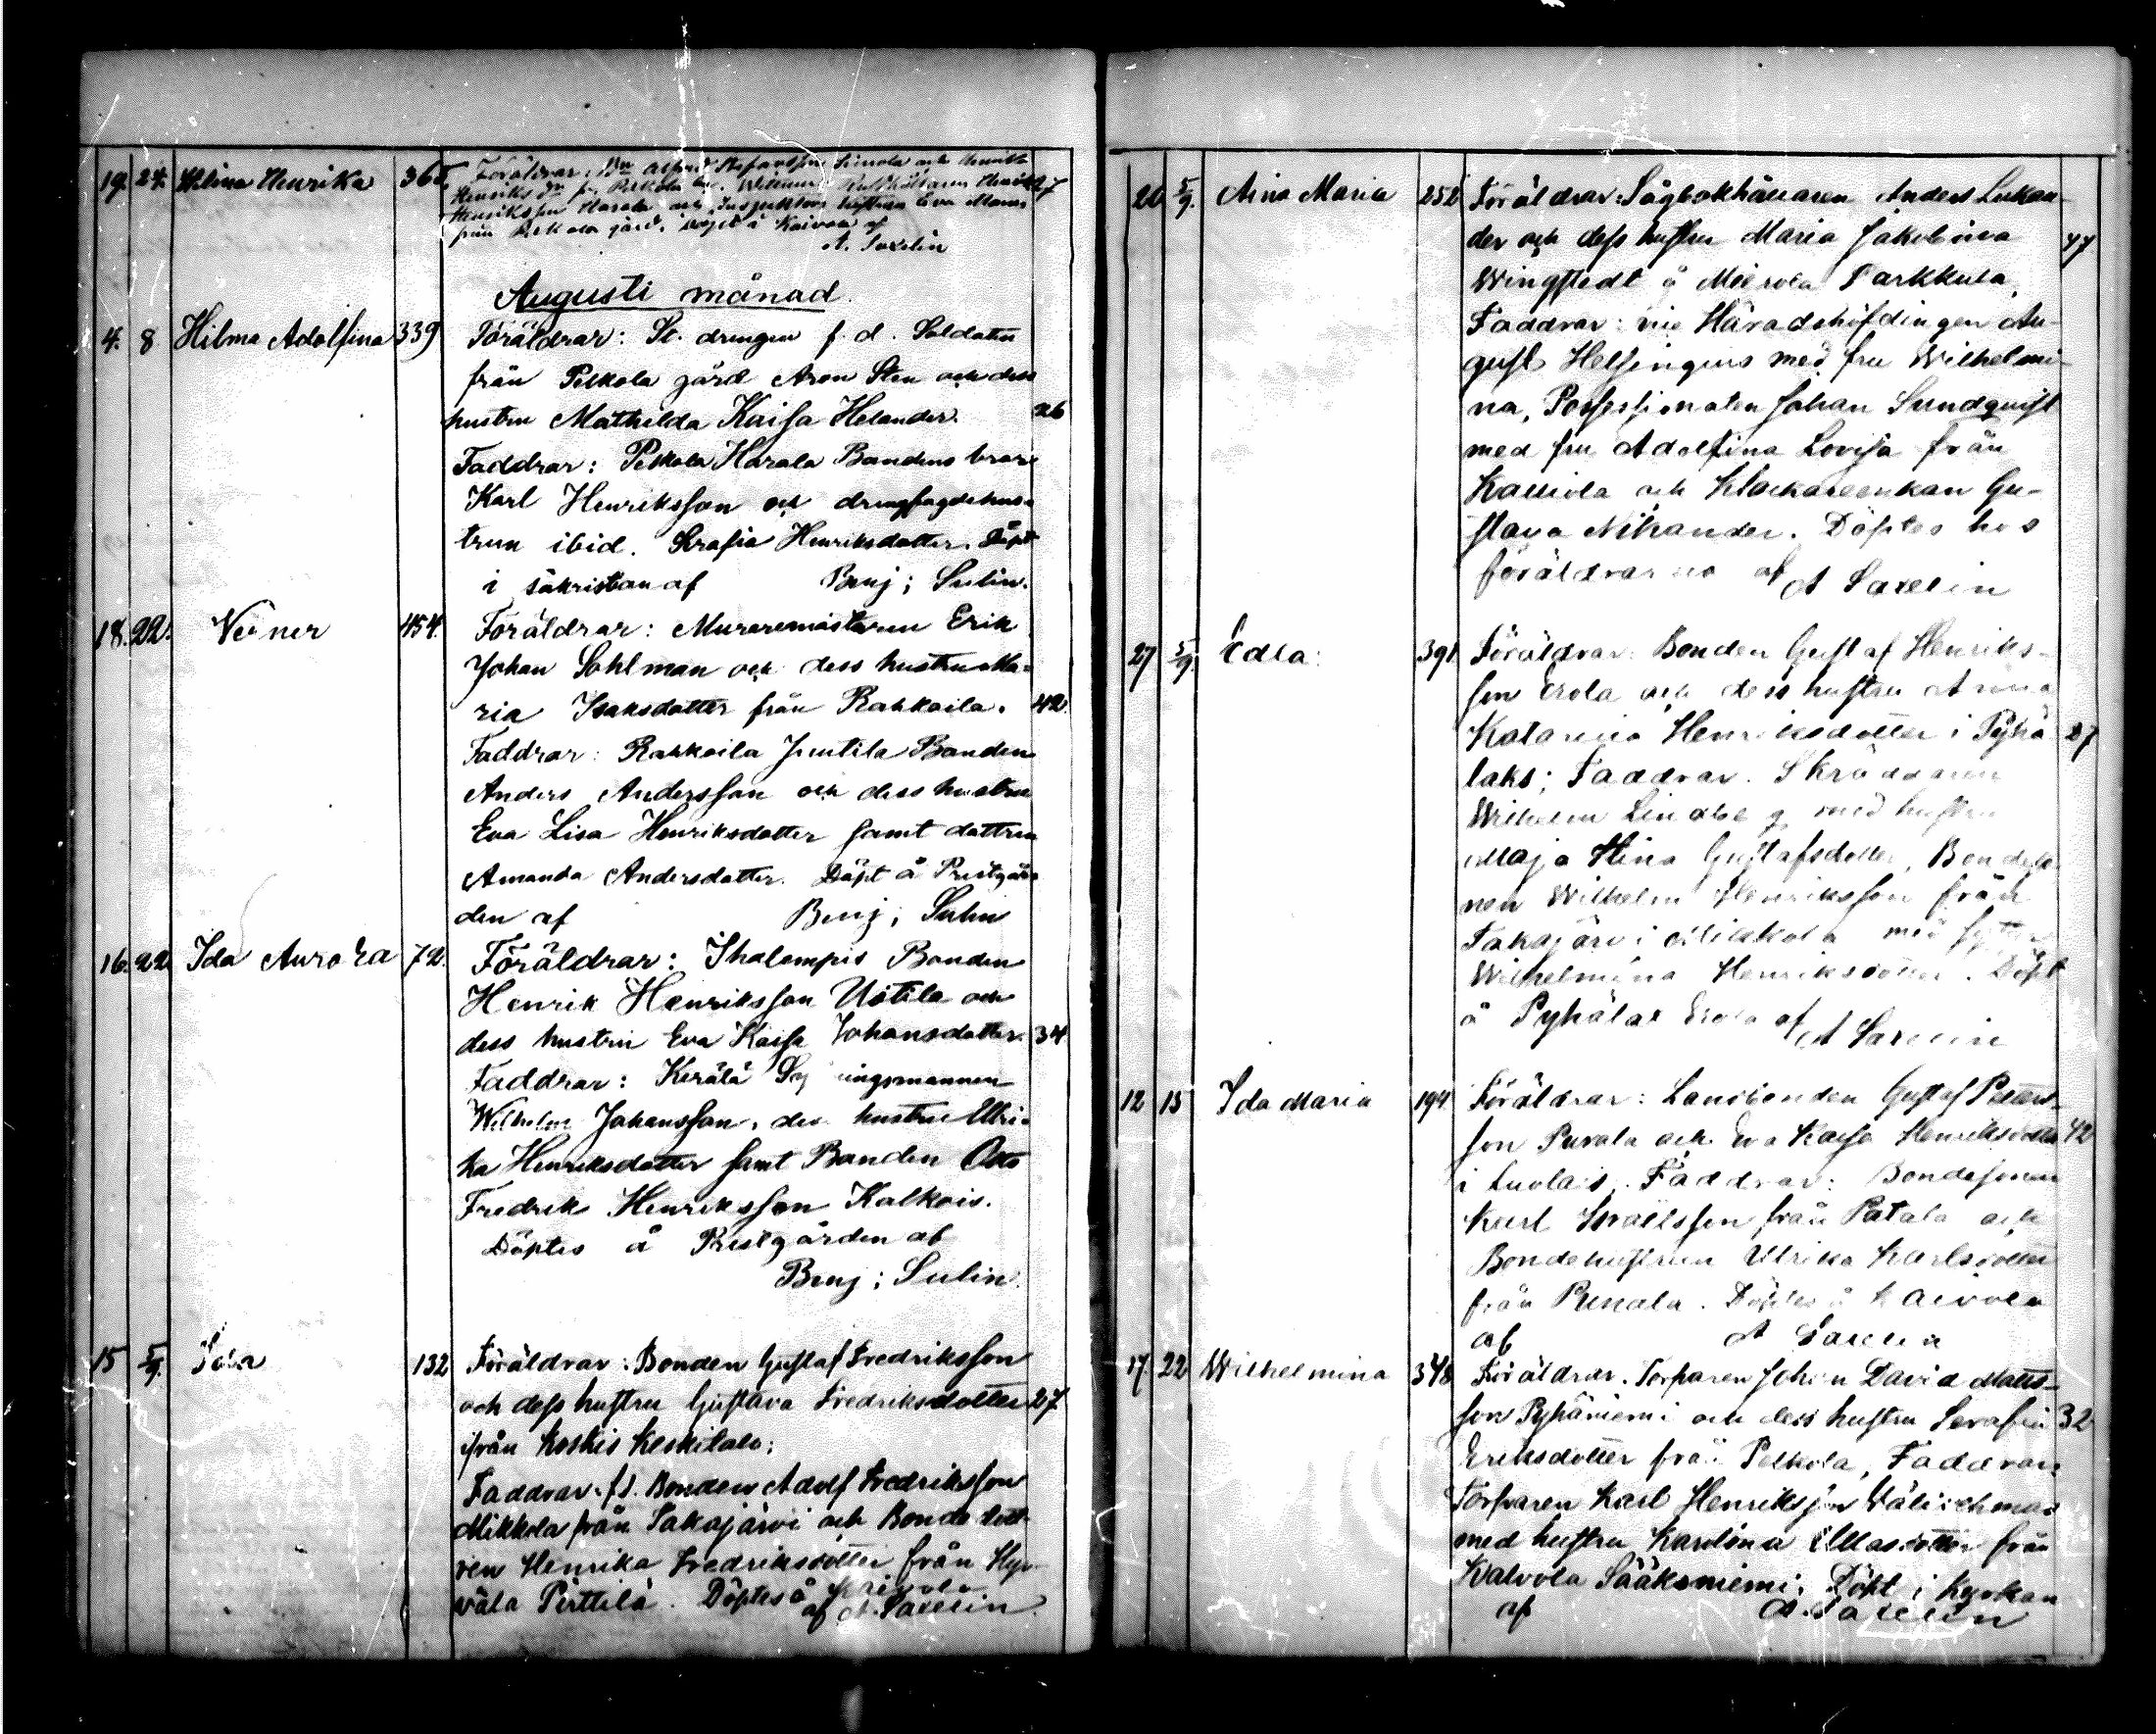 19. 24. Wilina Henrika 365 Föräldrar: Bn Alfred Simola och Henrika
Henriksdr fr. Pelkola Henrik 27
Henriksson Harala och Inspektors hustrun Eva Maria
från Pelkola gård. i Kaivola af
A. Saxelin
Augusti månad.
4. 8 Hilma Adolfina 339 Föräldrar: St. drengen f. d. Soldaten
från Pelkola gård Aron Sten och dess
hustru Mathilda Kaisa Helander. 26
Faddrar: Pelkola Harala Bondens bror
Karl Henriksson och drengfogdehus-
trun ibid. Serafia Henriksdotter. Döpt
i sakristian af Benj; Sulin.
18. 22. Verner 454. Föräldrar: Muraremästaren Erik
Johan Sohlman och dess hustru Ma-
ria Isaksdotter från Rahkoila. 42.
Faddrar: Rahkoila Juntila Bonden
Anders Andersson och dess hustru
Eva Lisa Henriksdotter samt dottren
Amanda Andersdotter. Döpt å Prestgår-
den af Benj; Sulin
16. 22 Ida Aurora 72. Föräldrar: Ihalempis Bonden
Henrik Henriksson Uotila och
dess hustru Eva Kaisa Johansdotter. 34
Faddrar: Kerälä
Wilhelm Johansson, des hustru Ulri-
ka Henriksdotter samt Bonden Otto
Fredrik Henriksson Kalkois.
Döptes å Prestgården af
Benj; Sulin.
15 5/9. 132 Föräldrar: Bonden Gustaf Fredriksson
och dess hustru Gustava Fredriksdotter 27
från Koskis Keskitalo;
Faddrar: fd. Bonden Adolf Fredriksson
Mikkola från Takajärvi och Bonde dott-
ren Henrika Fredriksdotter från Hyr-
väla Perttilä. Döptes å Kaivola
af A. Saxelin.
20 5/9. Aina Maria 252 Föräldrar: Sågbokhållaren Anders Lukan-
der och dess hustru Maria Jakobina 47
Wingstedt å Mierola Parkkula,
Faddrar: vice Häradshöfdingen Au-
gust Helsingius med fru Wilhelmi-
na, Possessionaten Johan Sundquist
med fru Adolfina Lovisa från
och Klockareenkan Gu-
stava Nikander. Döptes hos
föräldrarna af A Saxelin
27 5/9. Edla 391 Föräldrar: Bonden Gustaf Henriks-
son Erola och dess hustru Anna
Katarina Henriksdotter i Pyhä- 27
laks; Faddrar. Skräddaren
Wilhelm Lindberg med hustru
Maja Stina Gustafsdotter, Bondeso-
nen Wilhelm Henriksson från
Takajärvi med syster
Wilhelmina Henriksdotter. Döpt
å Pyhälax Erola af A Saxelin
12 15 Ida Maria 194 Föräldrar: Landbonden Gustaf
son Purala och Eva Kaisa Henriksdotter 42
i Luolais. Faddrar: Bondesonen
Karl från Patala och
Bondehustrun Ulrika Karlsdotter
från Döptes å Kaivola
af A Saxelin
17 22 Wilhelmina 348 Föräldrar. Torparen Johan David Matts-
son Pyhäniemi och dess hustru Serafia 32
Eriksdotter från Pelkola, Faddrar:
Torparen Karl Henriksson
med hustru Karolina från
Kalvola Sääksniemi. Döpt i Kyrkan
af A. Saxelin